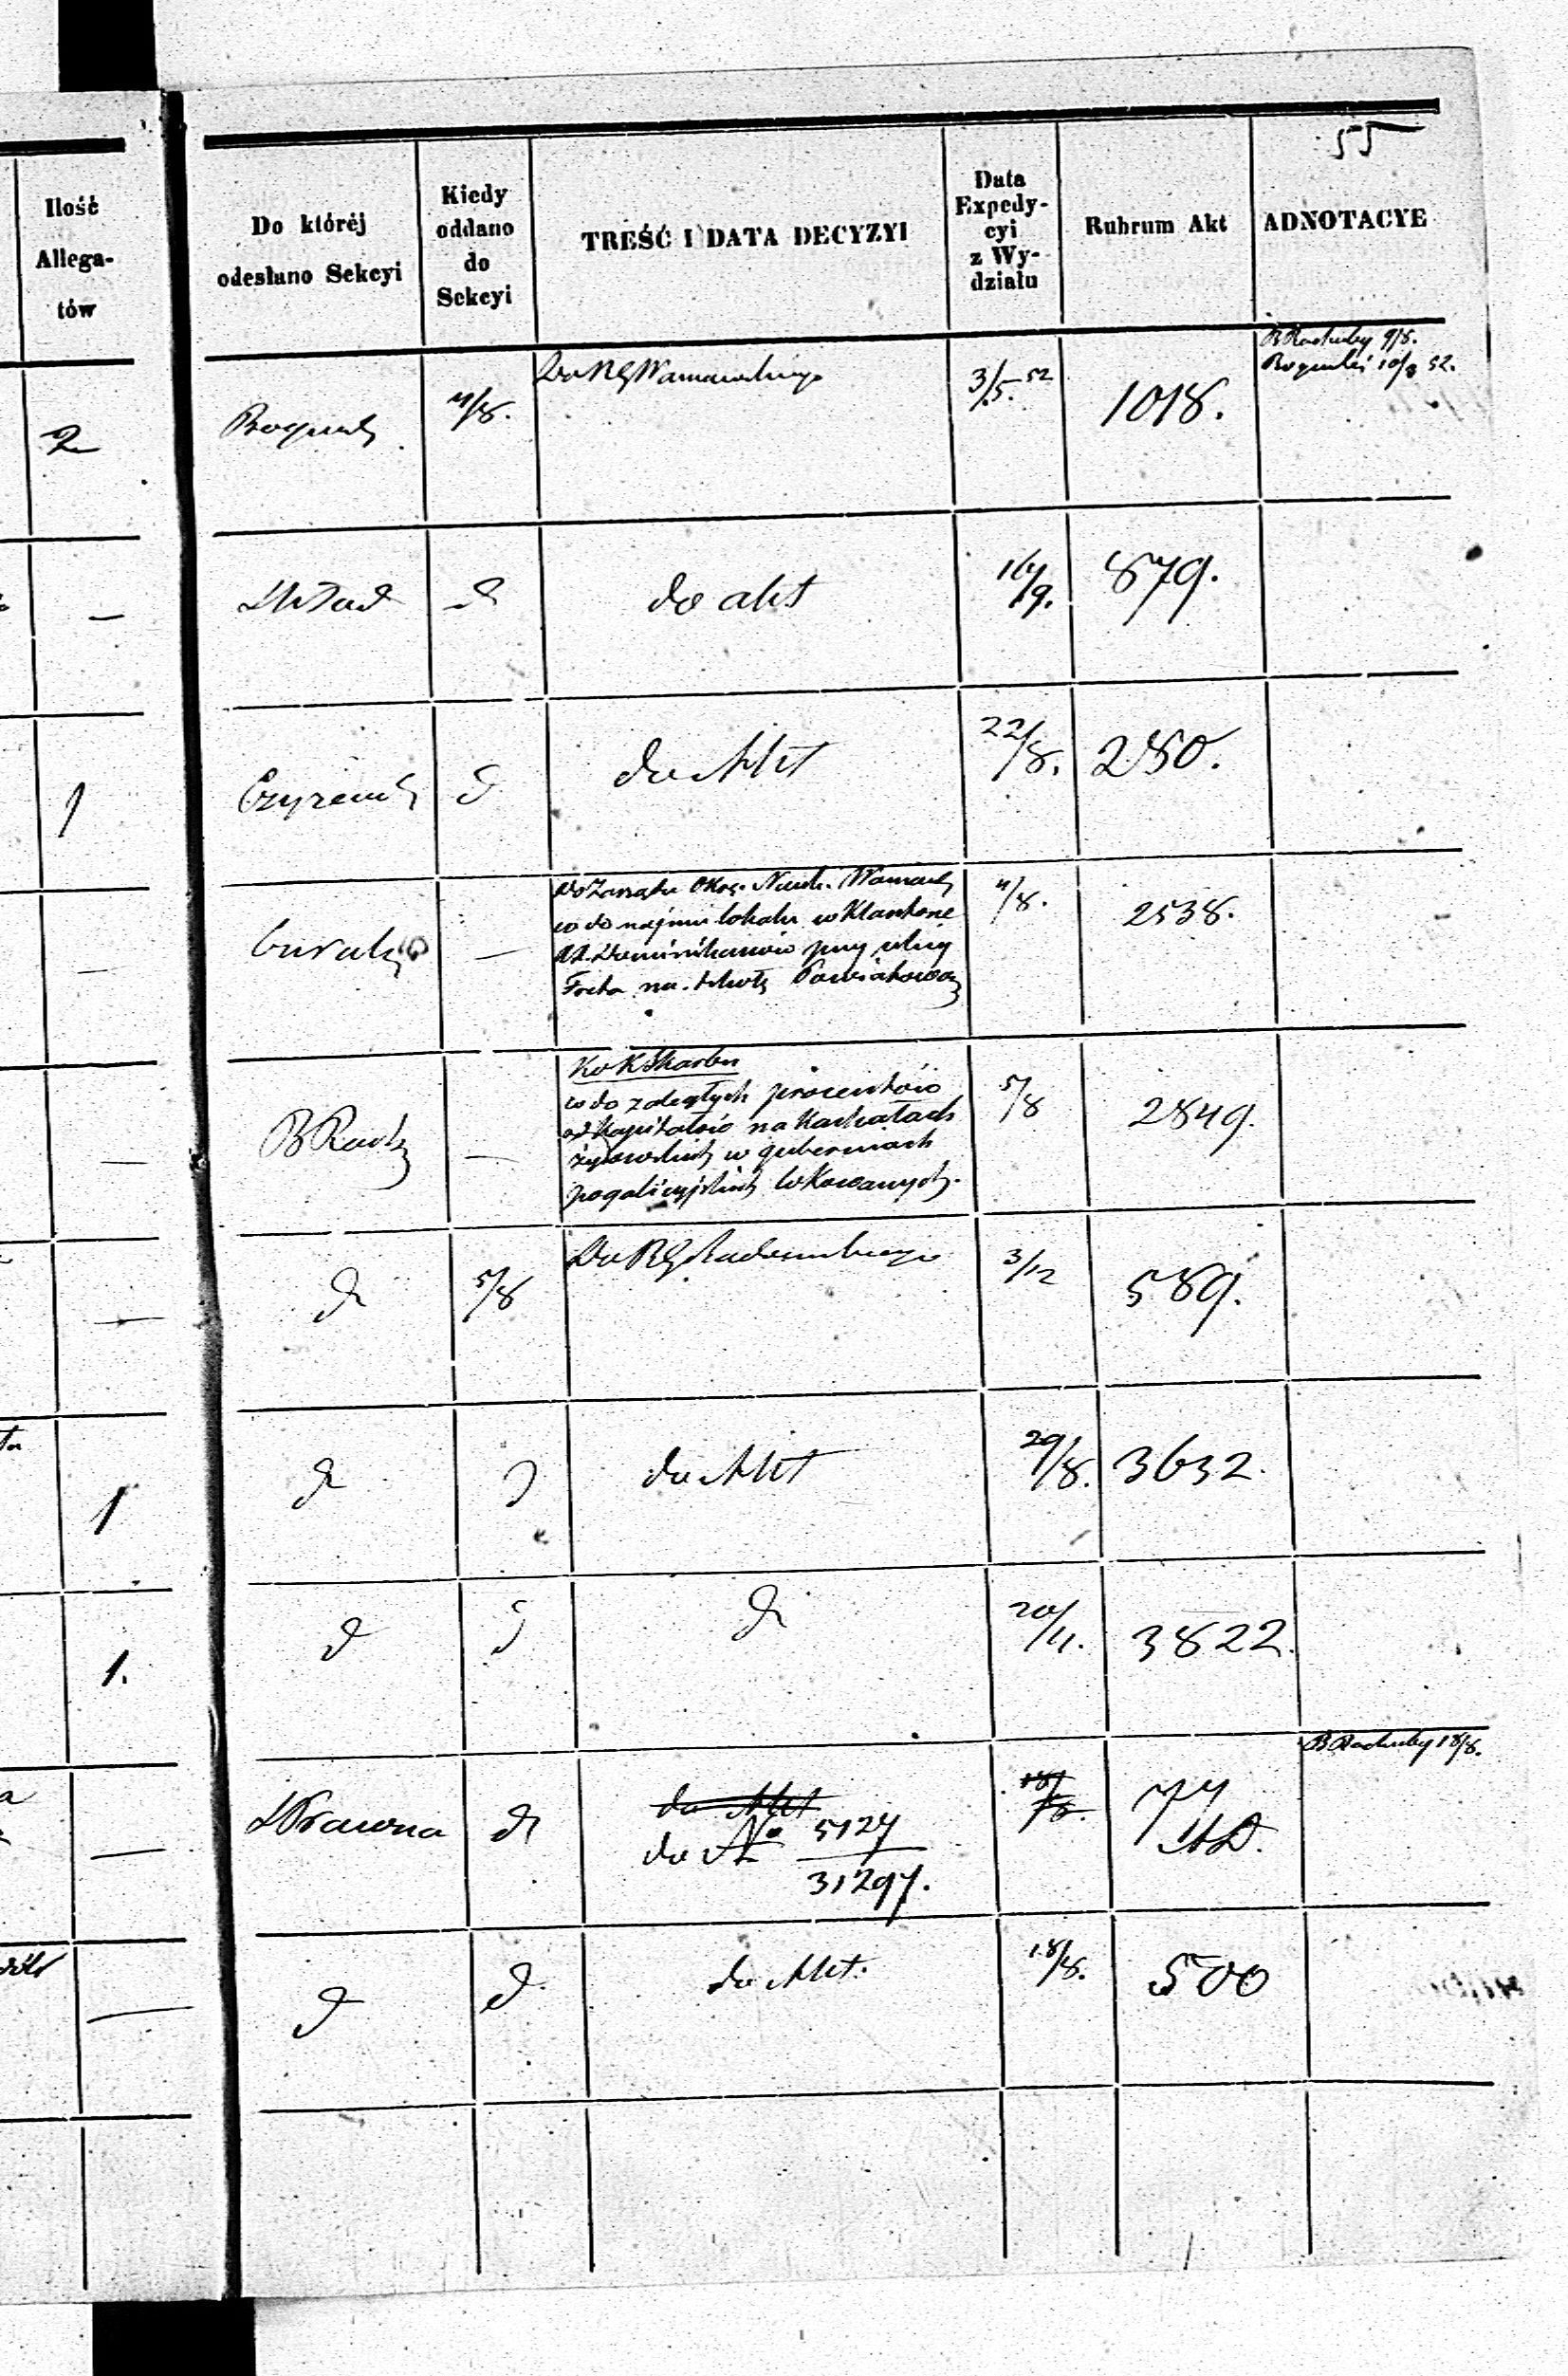 55
Ilość
Allega-
tów
Do któréj
odesłano Sekcyi
Kiedy
oddano
do
Sekcyi
TREŚĆ I DATA DECYZYI
Data
Expedy-
cyi
z Wy-
działu
Rubrum Akt
ADNOTACYE
2
4/8.
Do RG Warszawskiego
3/5. 52
1018.
B Rachuby 9/8.
10/8 52.
—
do akt
16/9.
879.
1
do Akt
22/8.
280.
—
—
Do Zarządu Okrę. Nauk. Warszaw
co do najmu lokalu w Klasztorze
XX. Dominikanów przy ulicy
Freta na szkołę Powiatową
4/8.
2538.
—
B Rach
—
Ko K Skarbu
co do zaległych procentów
od kapitałów na Kachałach
żydowskich w guberniach
pogalicyjskich lokowanych.
5/8
2849.
—
5/8
Do RG Radomskiego
3/12
589.
1
do Akt
29/8.
3632.
1.
20/11.
3822.
—
Prawna
do Akt
do № 5127
31297.
18/8.
77
B Rachuby 18/8.
—
do Akt.
18/8.
500